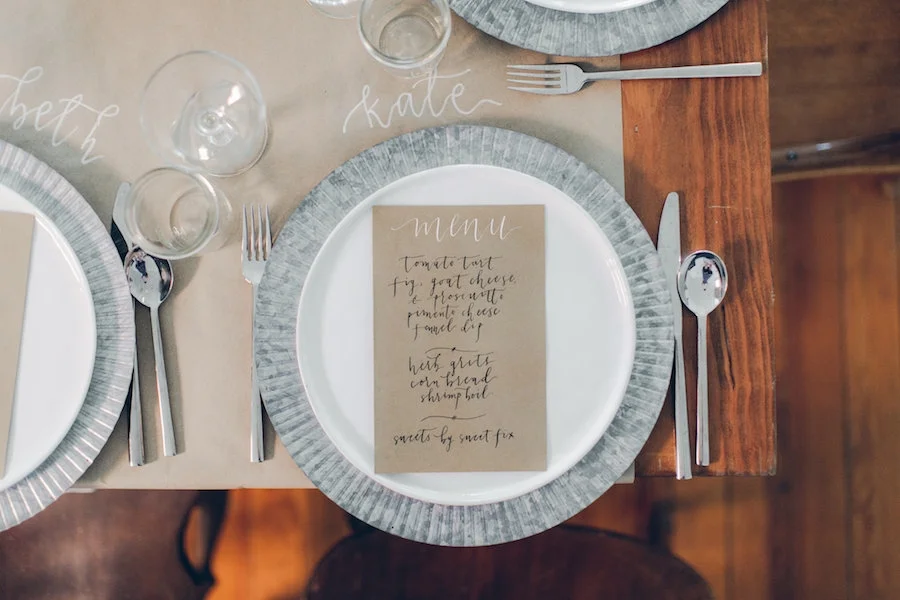 beth
kate
menu
tomato tart
fig, goat cheese,
& prosciutto
pimento cheese
fennel dip
herb grits
corn bread
shrimp boil
sweets by sweet fix